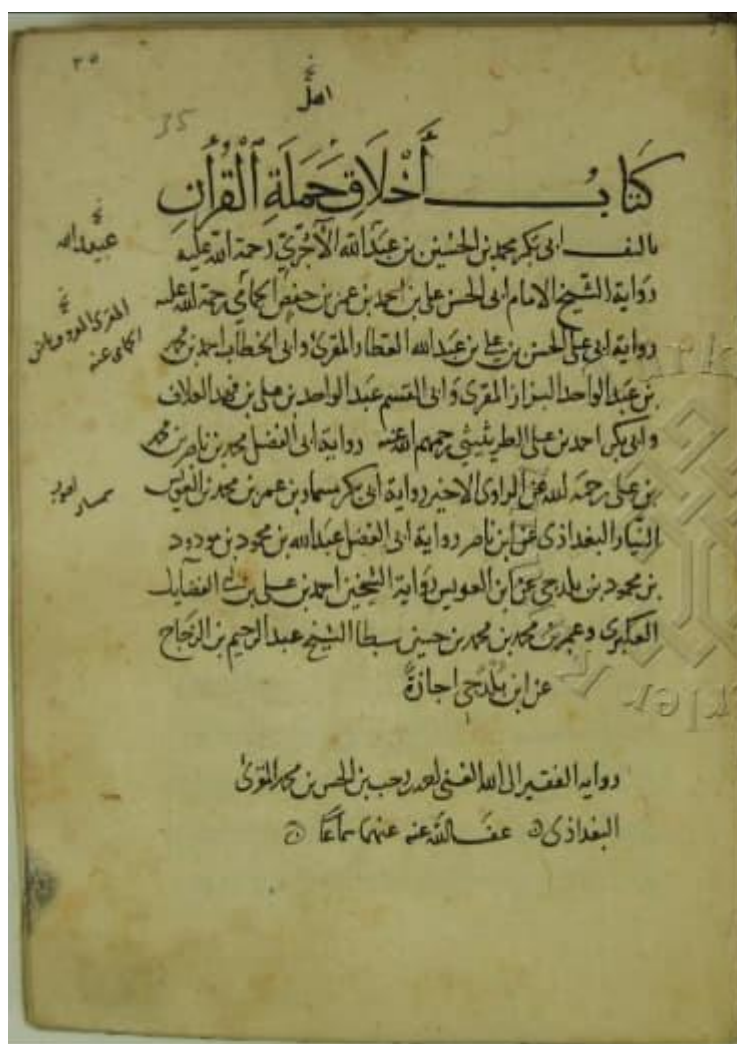 ٣٥
35
اهل
كتاب أخلاق حملة القرآن
تاليف ابى بكر محمد بن الحسين بن عبد الله الآجري رحمة الله عليه
رواية الشيخ الامام ابى الحسن على بن احمد بن عمر بن حفص الحمامي رحمة الله عليه
رواية ابى على الحسن بن علي بن عبد الله العطار المقرئ وابى الخطاب احمد بن محمد
بن عبد الواحد البزاز المقرى وابى القسم عبد الواحد بن على بن فهد العلاف
وابى بكر احمد بن على الطريثيثي رحمهم الله عنه رواية ابى الفضل محمد بن ناصر بن محمد
بن على رحمه الله عن الراوى الاخير رواية ابى بكر مسمار بن عمر بن محمد بن العويس
النيار البغداذى عن ابن ناصر رواية ابى الفضل عبد الله بن محمود بن مودود
بن محمود بن بلدجى عن ابن العويس رواية الشيخين احمد بن على بن ابى الفضايل
العكبرى وعمر بن محمد بن محمد بن حسين سبطا الشيخ عبد الرحيم بن الزجاج
عن ابن بلدجى اجازة
روايه الفقير الى الله الغنى احمد بن رجب بن الحسن بن محمد المقرئ
البغداذى عفا الله عنه عنهما سماعا
عبيد الله
المقرئ
عنه
مسمار